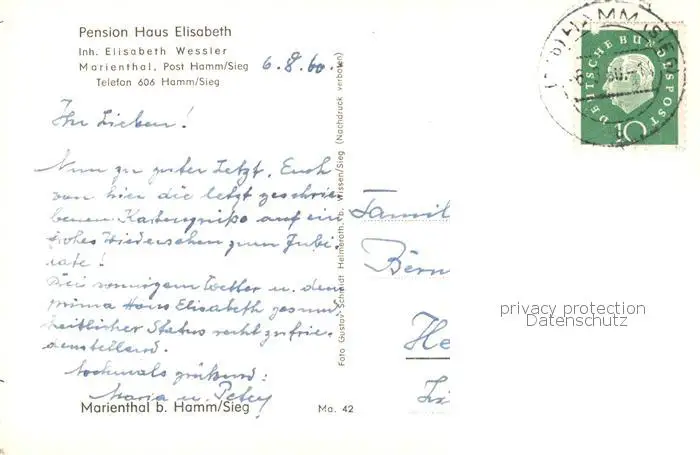 Pension Haus Elisabeth
Inh. Elisabeth Wessler
Marienthal, Post Hamm/Sieg
Telefon 606 Hamm/Sieg
6.8.60.
Ihr Lieben!
Nun zu guter Letzt, Euch
von hier die letzt geschrie-
benen Kartengrüße auf ein
frohes Wiedersehen zum Jubi-
late!
Bei sonnigem Wetter u. dem
prima Haus Elisabeth gesund-
heitlicher Status recht zufrie-
denstellend.
Nochmals grüßend:
Maria u. Peter
Marienthal b. Hamm/Sieg
Ma. 42
Foto Gustav Schmidt Helmeroth, b. Wissen/Sieg (Nachdruck verboten)
Famil
Bern
He
HAMM (SIEG)
DEUTSCHE BUNDESPOST
10
privacy protection
Datenschutz